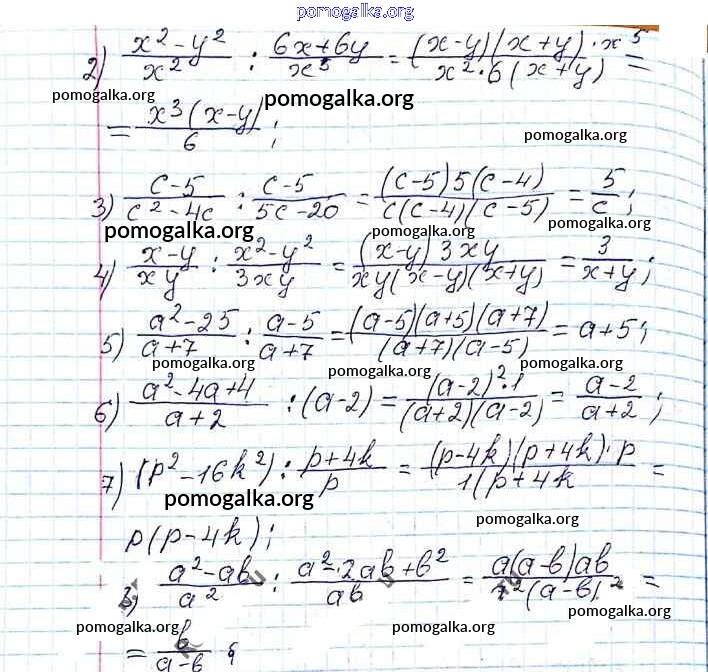 pomogalka.org
2) (x² - y²)/x² : (6x + 6y)/x⁵ = ((x-y)(x+y)·x⁵)/(x²·6(x+y)) =
pomogalka.org
pomogalka.org
= (x³(x-y))/6 ;
pomogalka.org
3) (c-5)/(c²-4c) : (c-5)/(5c-20) = ((c-5)5(c-4))/(c(c-4)(c-5)) = 5/c ;
pomogalka.org pomogalka.org pomogalka.org
4) (x-y)/(xy) : (x²-y²)/(3xy) = ((x-y)3xy)/(xy(x-y)(x+y)) = 3/(x+y) ;
5) (a²-25)/(a+7) : (a-5)/(a+7) = ((a-5)(a+5)(a+7))/((a+7)(a-5)) = a+5 ;
pomogalka.org pomogalka.org pomogalka.org
6) (a²-4a+4)/(a+2) : (a-2) = ((a-2)²·1)/((a+2)(a-2)) = (a-2)/(a+2) ;
7) (p²-16k²) : (p+4k)/p = ((p-4k)(p+4k)·p)/(1(p+4k) =
pomogalka.org
pomogalka.org
p(p-4k) ;
8) (a²-ab)/a² : (a²-2ab+b²)/(ab) = (a(a-b)ab)/(a²(a-b)²) =
pomogalka.org pomogalka.org pomogalka.org
= b/(a-b) ;